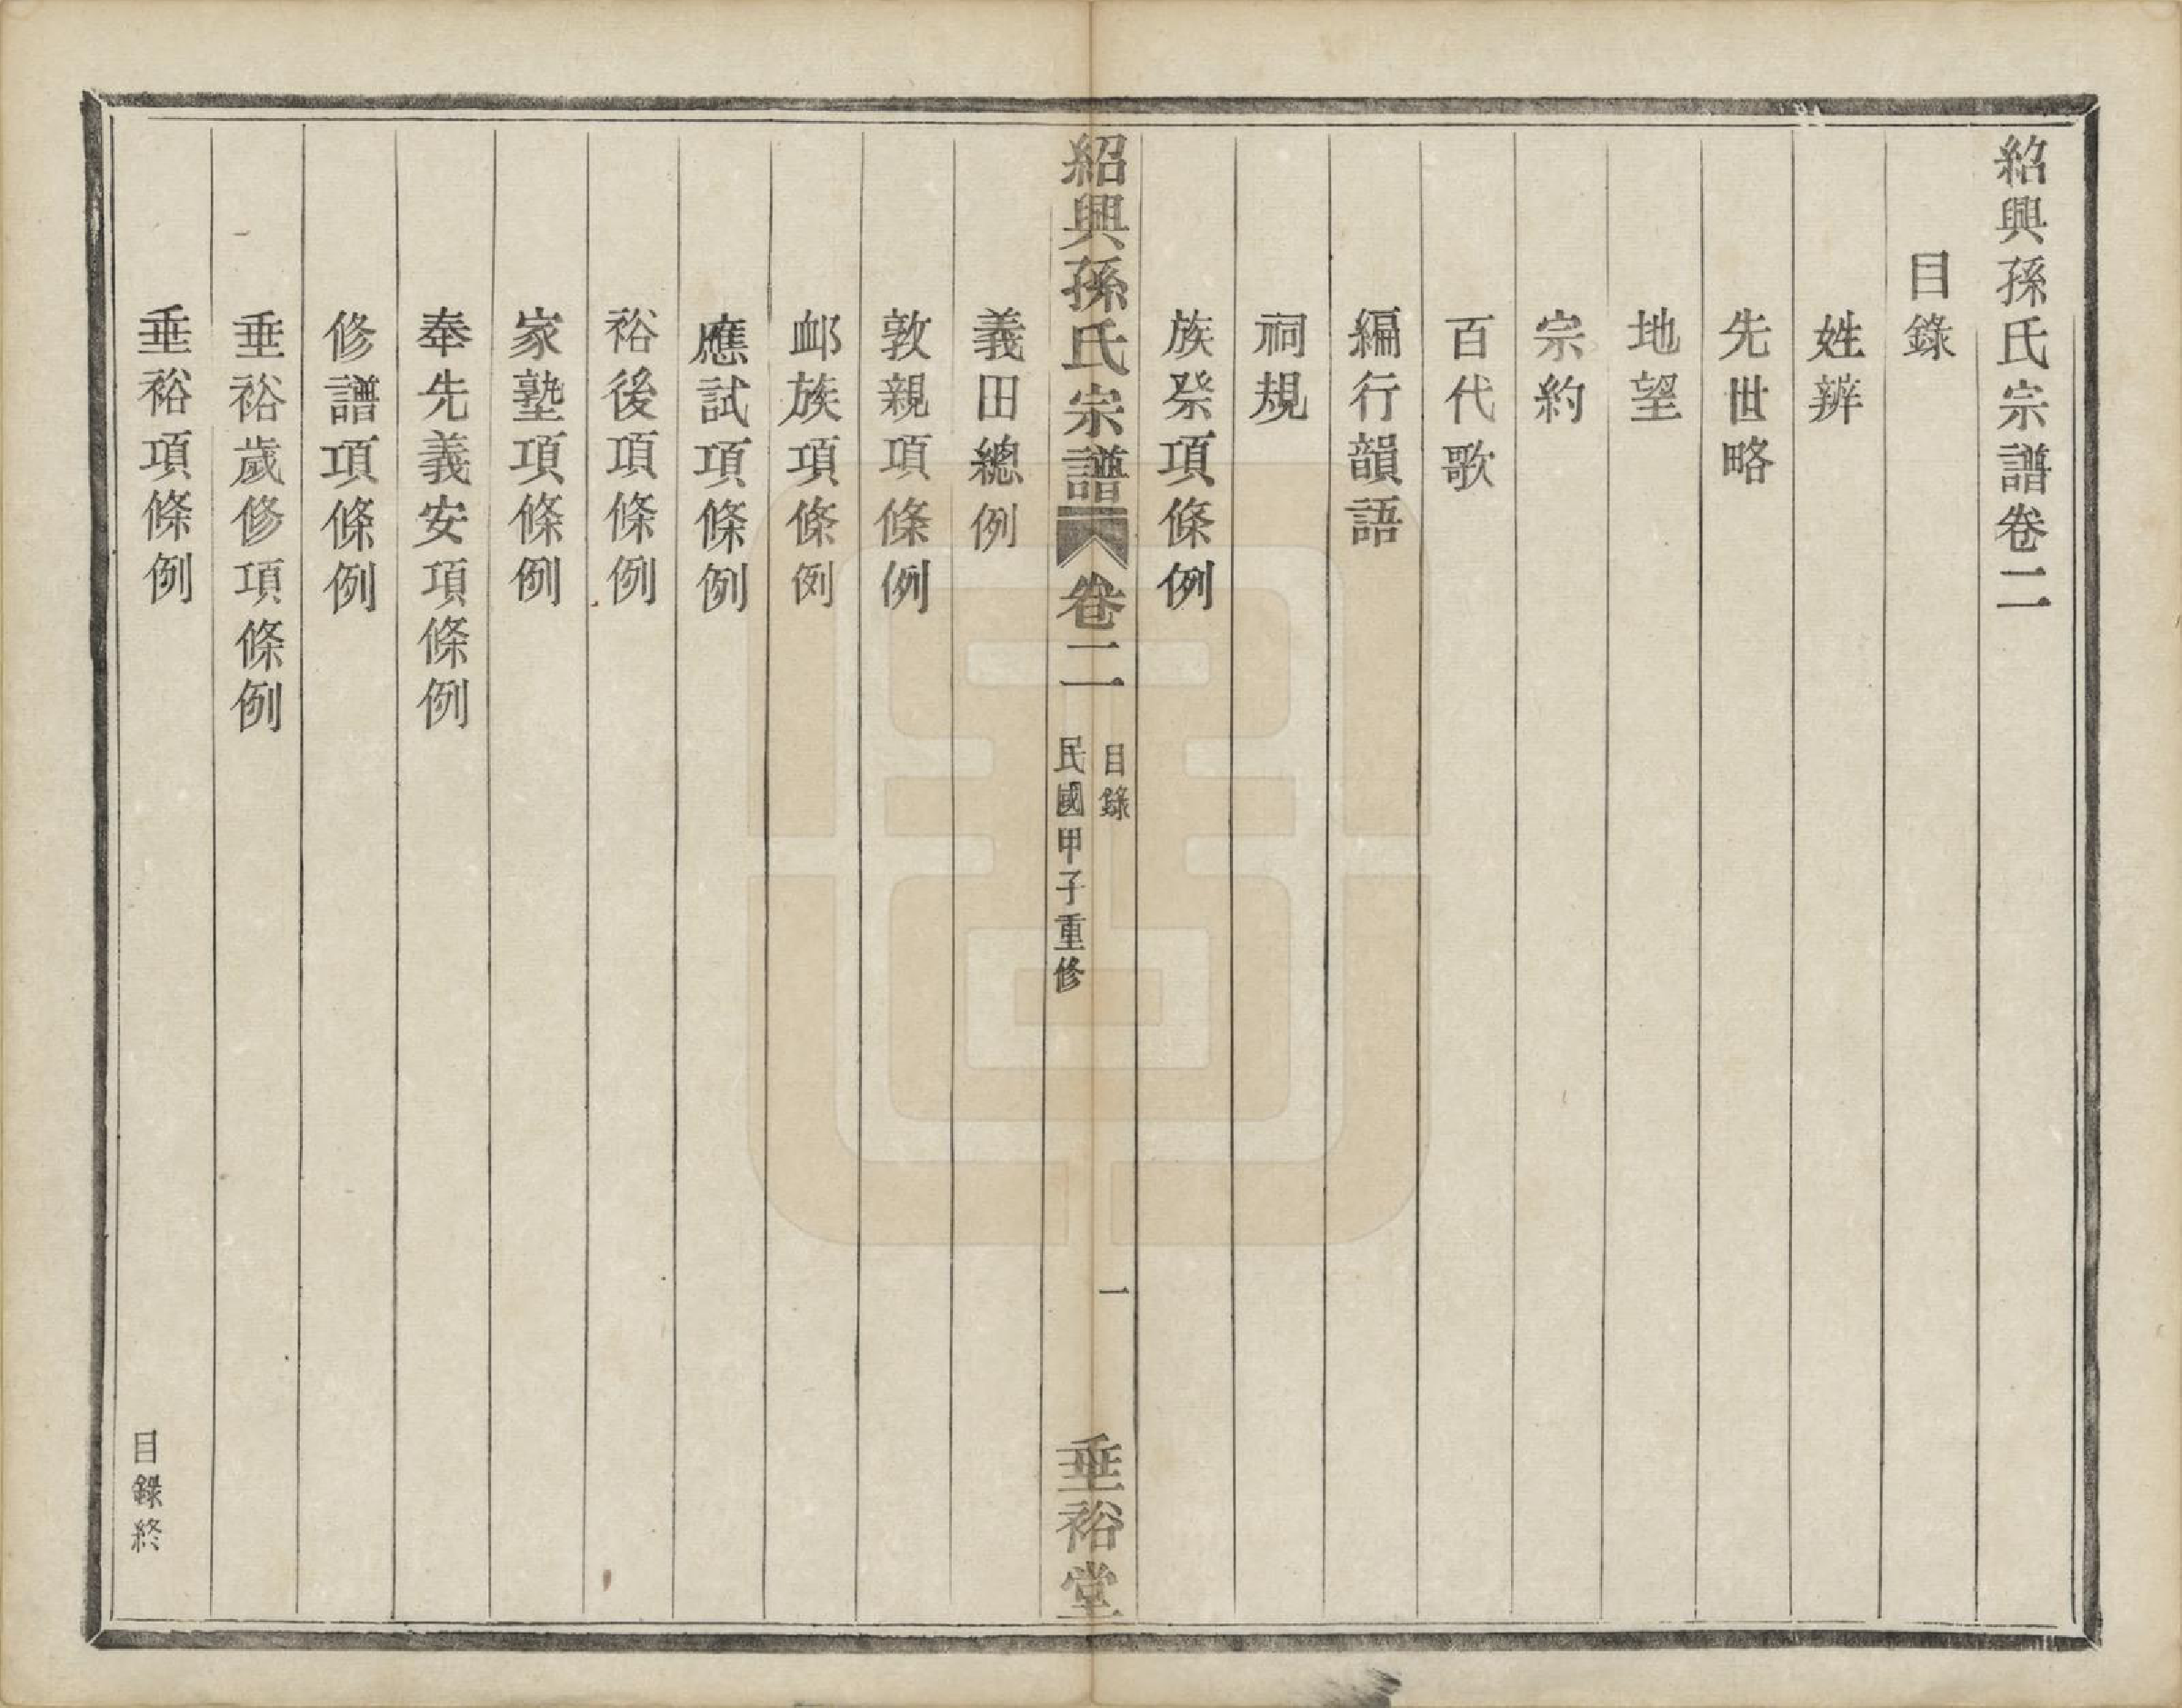 紹興孫氏宗譜卷二
目錄
姓辨
先世略
地望
宗約
百代歌
編行韻語
祠規
族祭項條例
紹興孫氏宗譜
卷二
目錄
民國甲子重修
一
垂裕堂
義田總例
敦親項條例
卹族項條例
應試項條例
裕後項條例
家塾項條例
奉先義安項條例
修譜項條例
垂裕歲修項條例
垂裕項條例
目錄終